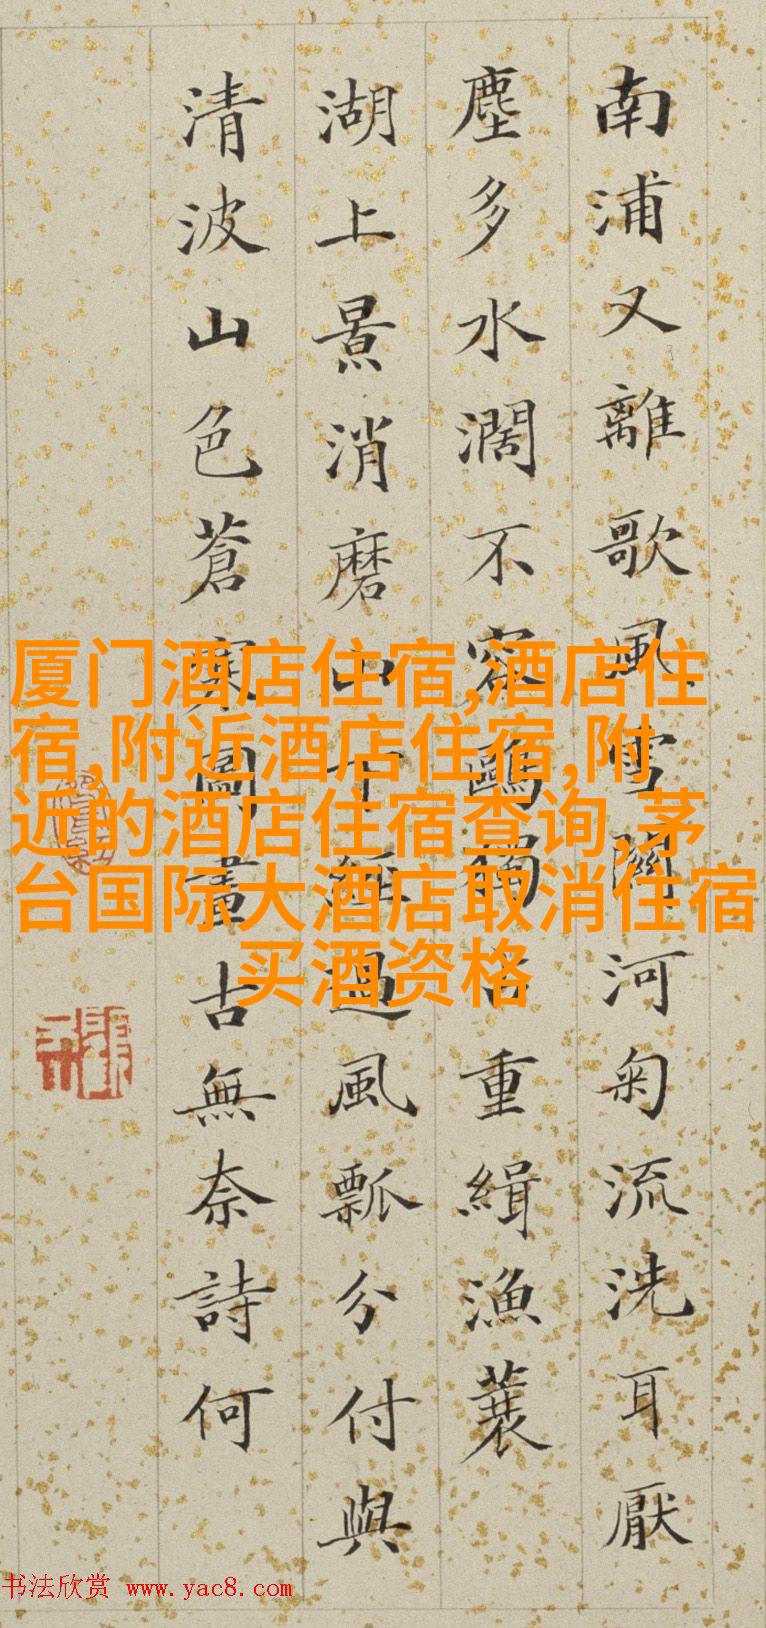 南浦又離歌風雪關河匊流洗耳厭
塵多水濶不容鷗獨占重緝漁蓑
湖上景消磨山經過風瓢分付與
清波山色蒼寒圖畫古無奈詩何
厦门酒店住宿,酒店住
宿,附近酒店住宿,附
近的酒店住宿查询,茅
台国际大酒店取消住宿
买酒资格
书法欣赏 www.yac8.com